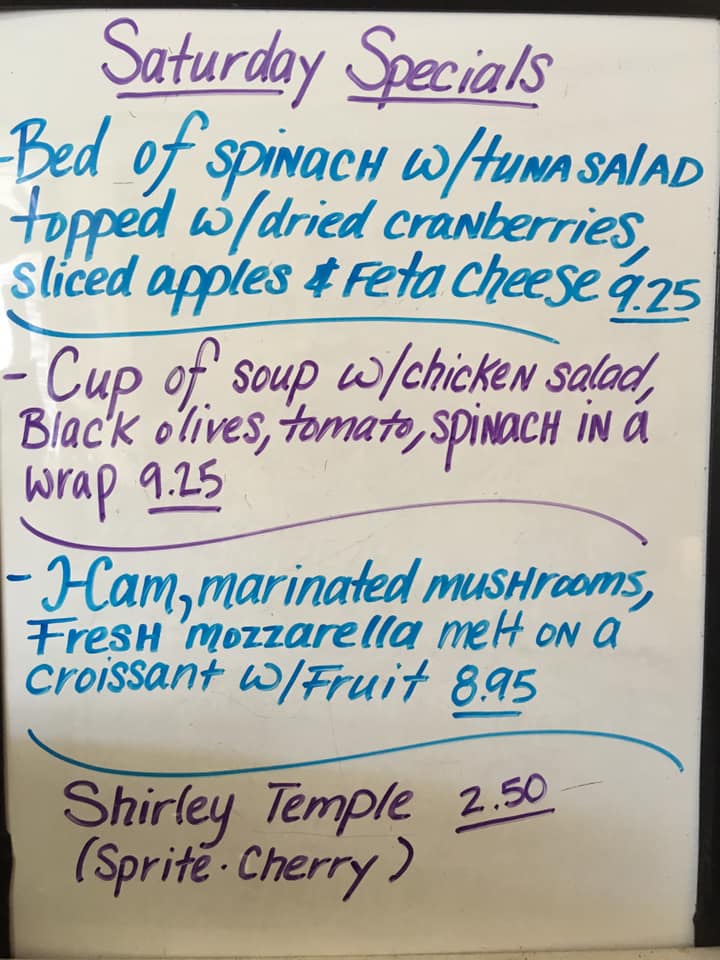 Saturday Specials
- Bed of spinach w/tuna salad
topped w/dried cranberries,
sliced apples & Feta cheese 9.25
- Cup of soup w/chicken salad,
Black olives, tomato, spinach in a
wrap 9.25
- Ham, marinated mushrooms,
Fresh mozzarella melt on a
Croissant w/Fruit 8.95
Shirley Temple 2.50
(Sprite · Cherry)